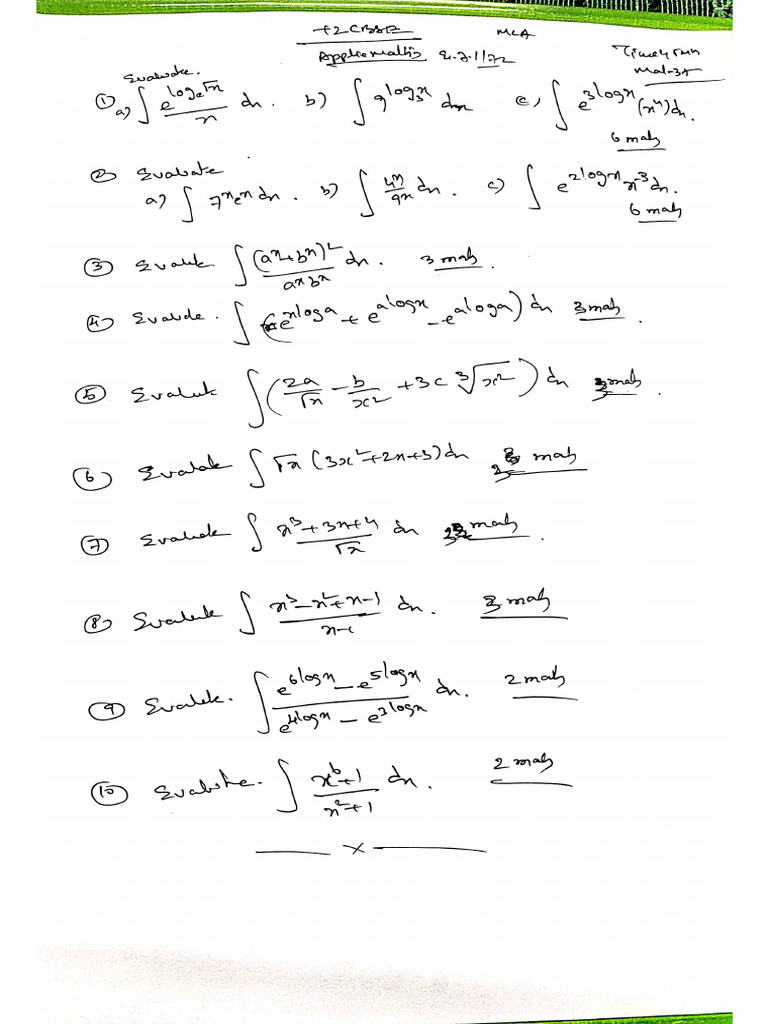 +2 CBSE MCA
Applied Maths Ex. 7.1/7.2 Time 45mn
Evaluate. Mal-37
① a) ∫ e^{log_e √x}/x dx. b) ∫ 9^{log_3 x} dx c) ∫ e^{3logx}(x⁴)dx.
6 mals
② Evaluate
a) ∫ 7^x e^x dx. b) ∫ 4^x/9^x dx. c) ∫ e^{2logx} x^{-3} dx.
6 mals
③ Evaluate ∫ (a^x+b^x)²/(a^x b^x) dx. 3 mals.
④ Evaluate. ∫ (e^{xloga} + e^{alogx} - e^{aloga}) dx 3 mals.
⑤ Evaluate ∫ (2a/√x - b/x² + 3c ∛x²) dx 3 mals.
⑥ Evaluate ∫ √x (3x²+2x+3)dx mals
⑦ Evaluate ∫ (x³+3x+4)/√x dx mals.
⑧ Evaluate ∫ (x³-x²+x-1)/(x-1) dx. mals
⑨ Evaluate. ∫ (e^{6logx} - e^{5logx})/(e^{4logx} - e^{3logx}) dx. 2 mals
⑩ Evaluate. ∫ (x⁶+1)/(x²+1) dx. 2 mals
—— x ——